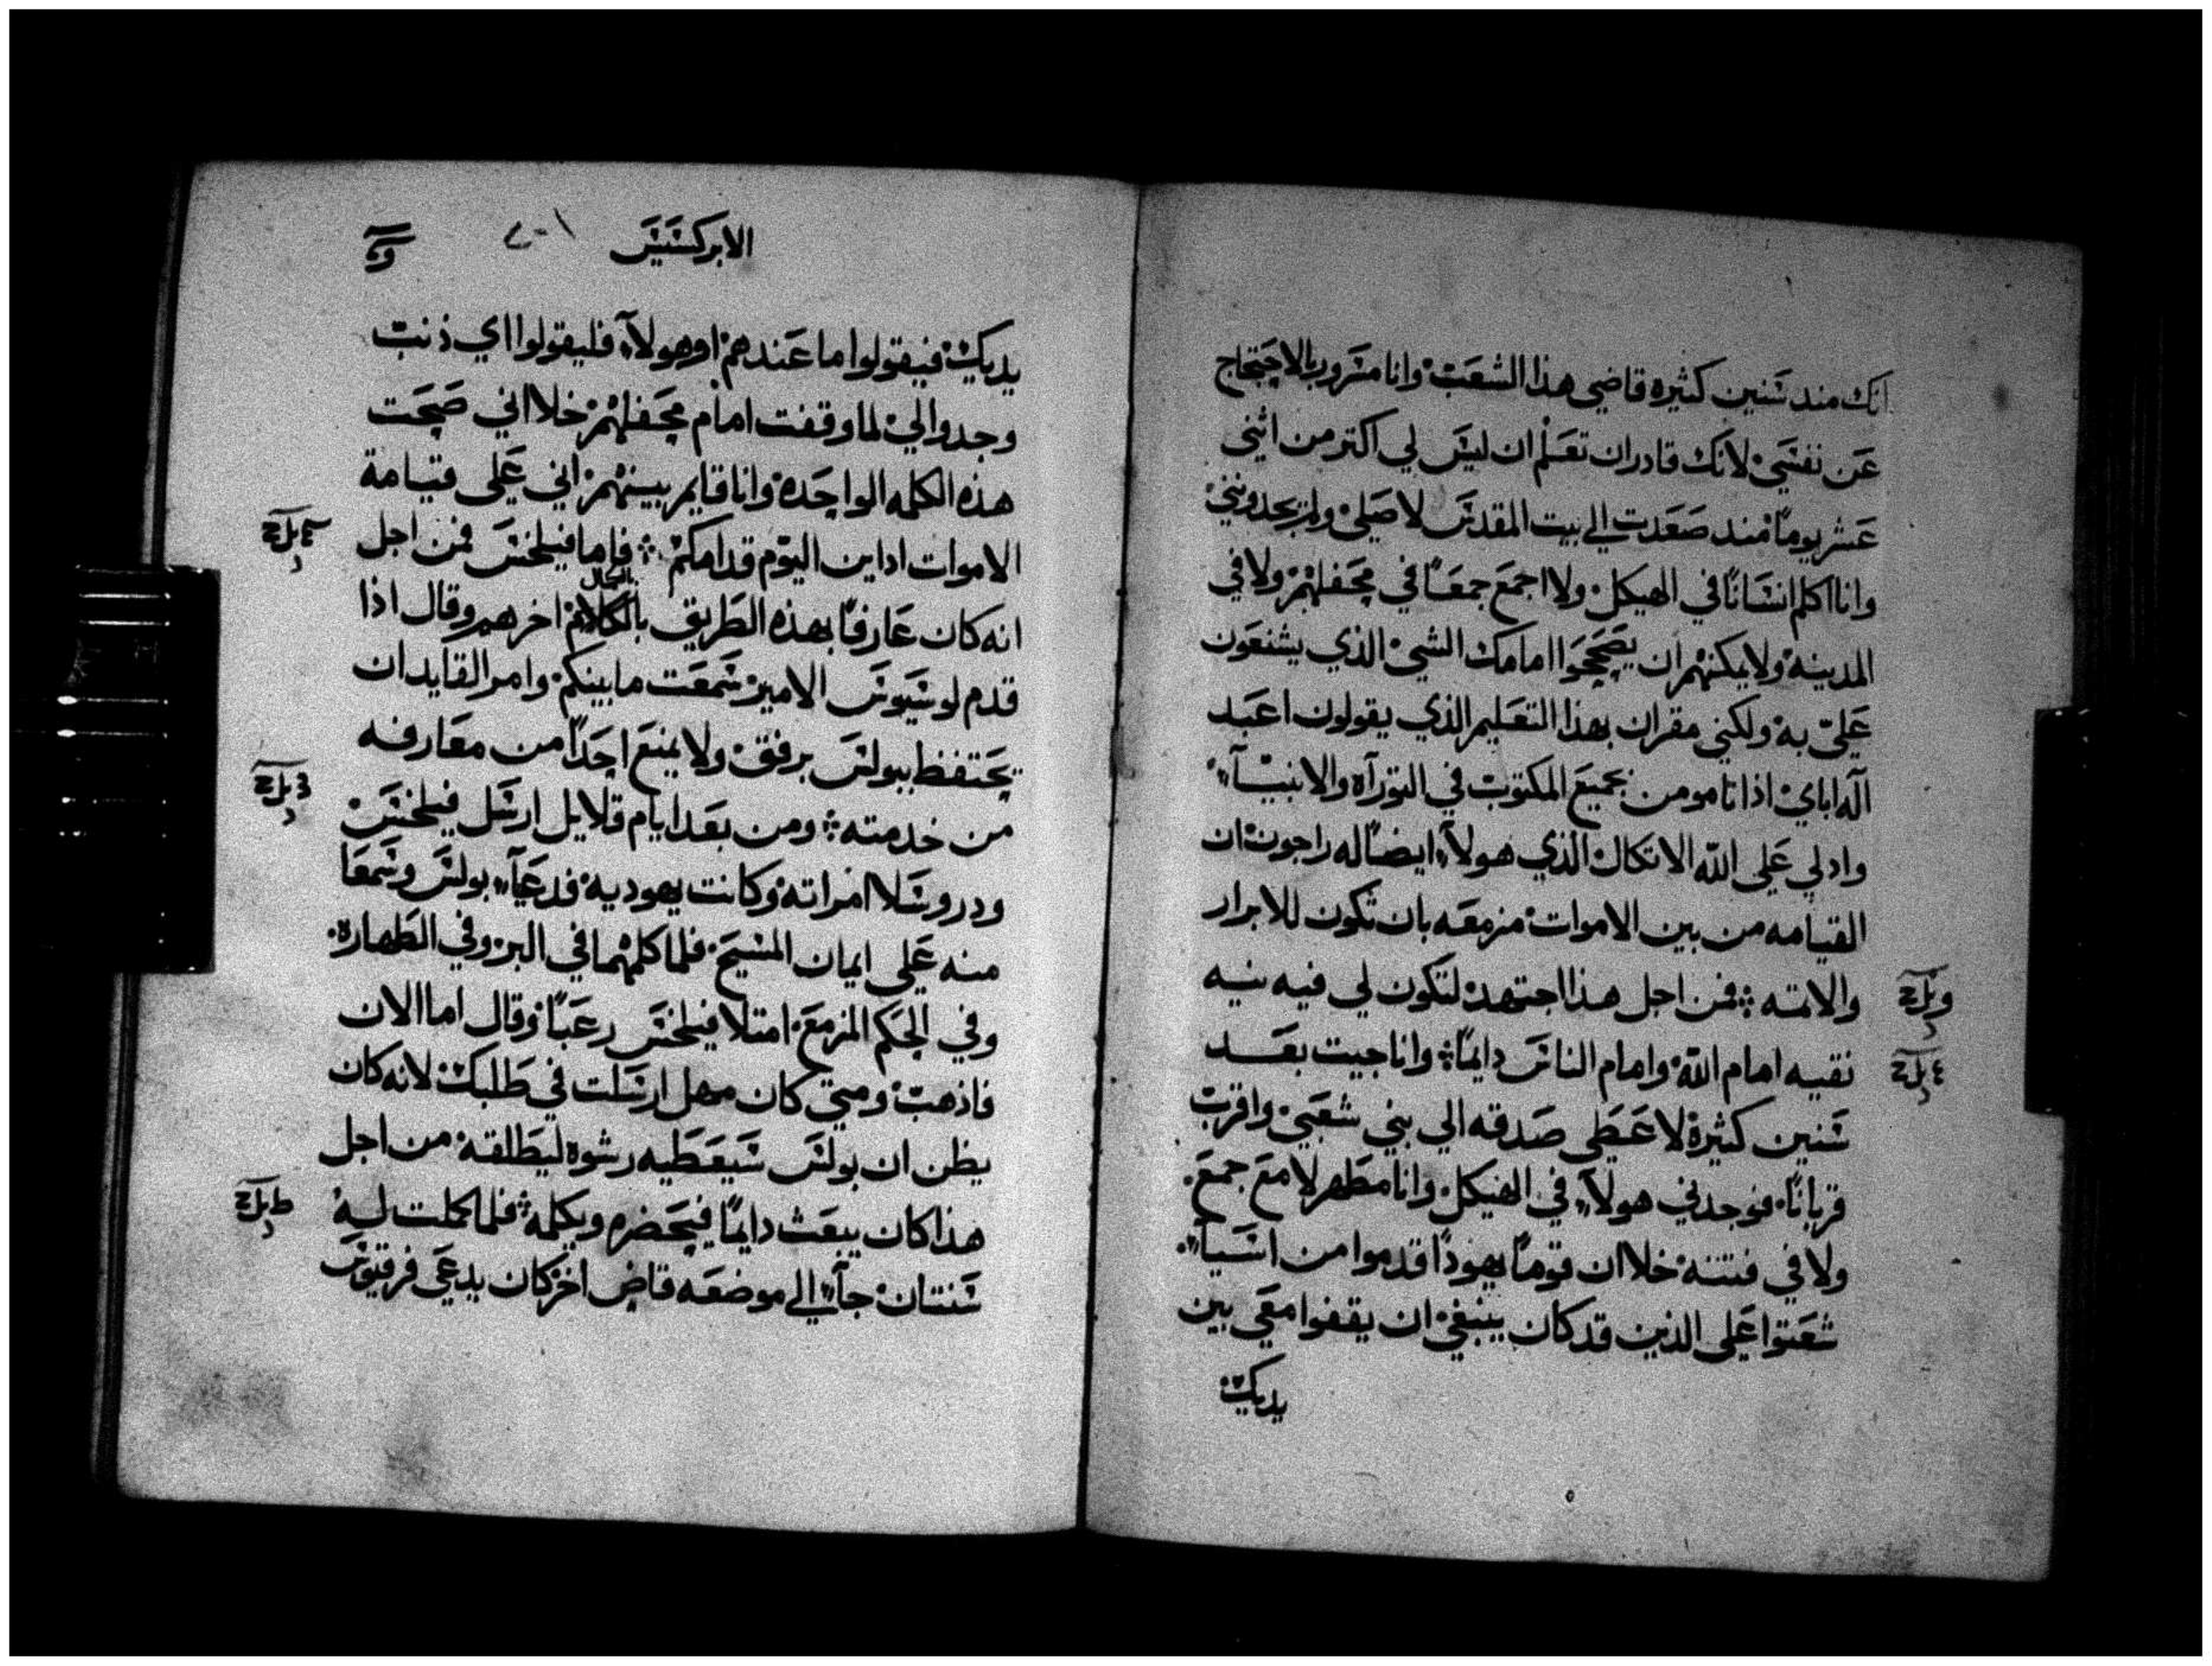 انك مند سنين كثيره قاضي هذا الشعب وانا مسرور بالاحتجاج
عن نفسي لانك قادر ان تعلم ان ليس لي اكتر من اثني
عشر يوماً مند صعدت الي بيت المقدس لاصلي ولم يجدونني
وانا اكلم انساناً في الهيكل ولا اجمع جمعاً في محفلهم ولا في
المدينة ولا يمكنهم ان يصححوا امامك الشي الذي يشنعون
عليّ به ولكني مقران بهذا التعليم الذي يقولون اعبد
آله اباي اذ انا مومن بجميع المكتوب في التورآه والانبيآء
وادلي علي الله الاتكال الذي هولآء ايضاً له راجون ان
القيامه من بين الاموات مزمعه بان تكون للابرار
والاتمه فمن اجل هذا اجتهد لتكون لي فيه نيه
نقيه امام الله وامام الناس دايماً وانا جيت بعد
سنين كثيرة لاعطي صدقه الي بني شعبي واقرب
قرباناً فوجدني هولآء في الهيكل وانا مطهر لا مع جمع
ولا في فتنه خلا ان قوماً يهوداً قدموا من اسيآء
شعتوا علي الذين قد كان ينبغي ان يقفوا معي بين
يديك
الابركسيس ٢٠١
يديك فيقولوا ما عندهم او هولآء فليقولوا اي ذنب
وجدوا لي لما وقفت امام محفلهم خلا اني صحت
هذه الكلمه الواحدة وانا قايم بينهم اني علي قيامة
الاموات اداين اليوم قدامكم فاما فيلخس فمن اجل
انه كان عارفاً بهذه الطريق بالكلام اخرهم وقال اذا
بالكمال
قدم لوسيوس الامير سمعت ما بينكم وامر القايد ان
يحتفظ ببولس برفق ولا يمنع احداً من معارفه
من خدمته ومن بعد ايام قلايل ارسل فيلخس
ودروسلا امراته وكانت يهودية فدعيآء بولس وسمعا
منه علي ايمان المسيح فلما كلمهما في البر وفي الطهارة
وفي الحكم المزمع امتلا فيلخس رعباً وقال اما الان
فاذهب ومتي كان مهل ارسلت في طلبك لانه كان
يظن ان بولس سيعطيه رشوة ليطلقه من اجل
هذا كان يبعث دايماً فيحضره ويكلمه فلما كملت ليه
سنتان جآء الي موضعه قاض اخر كان يدعي فرقيوس